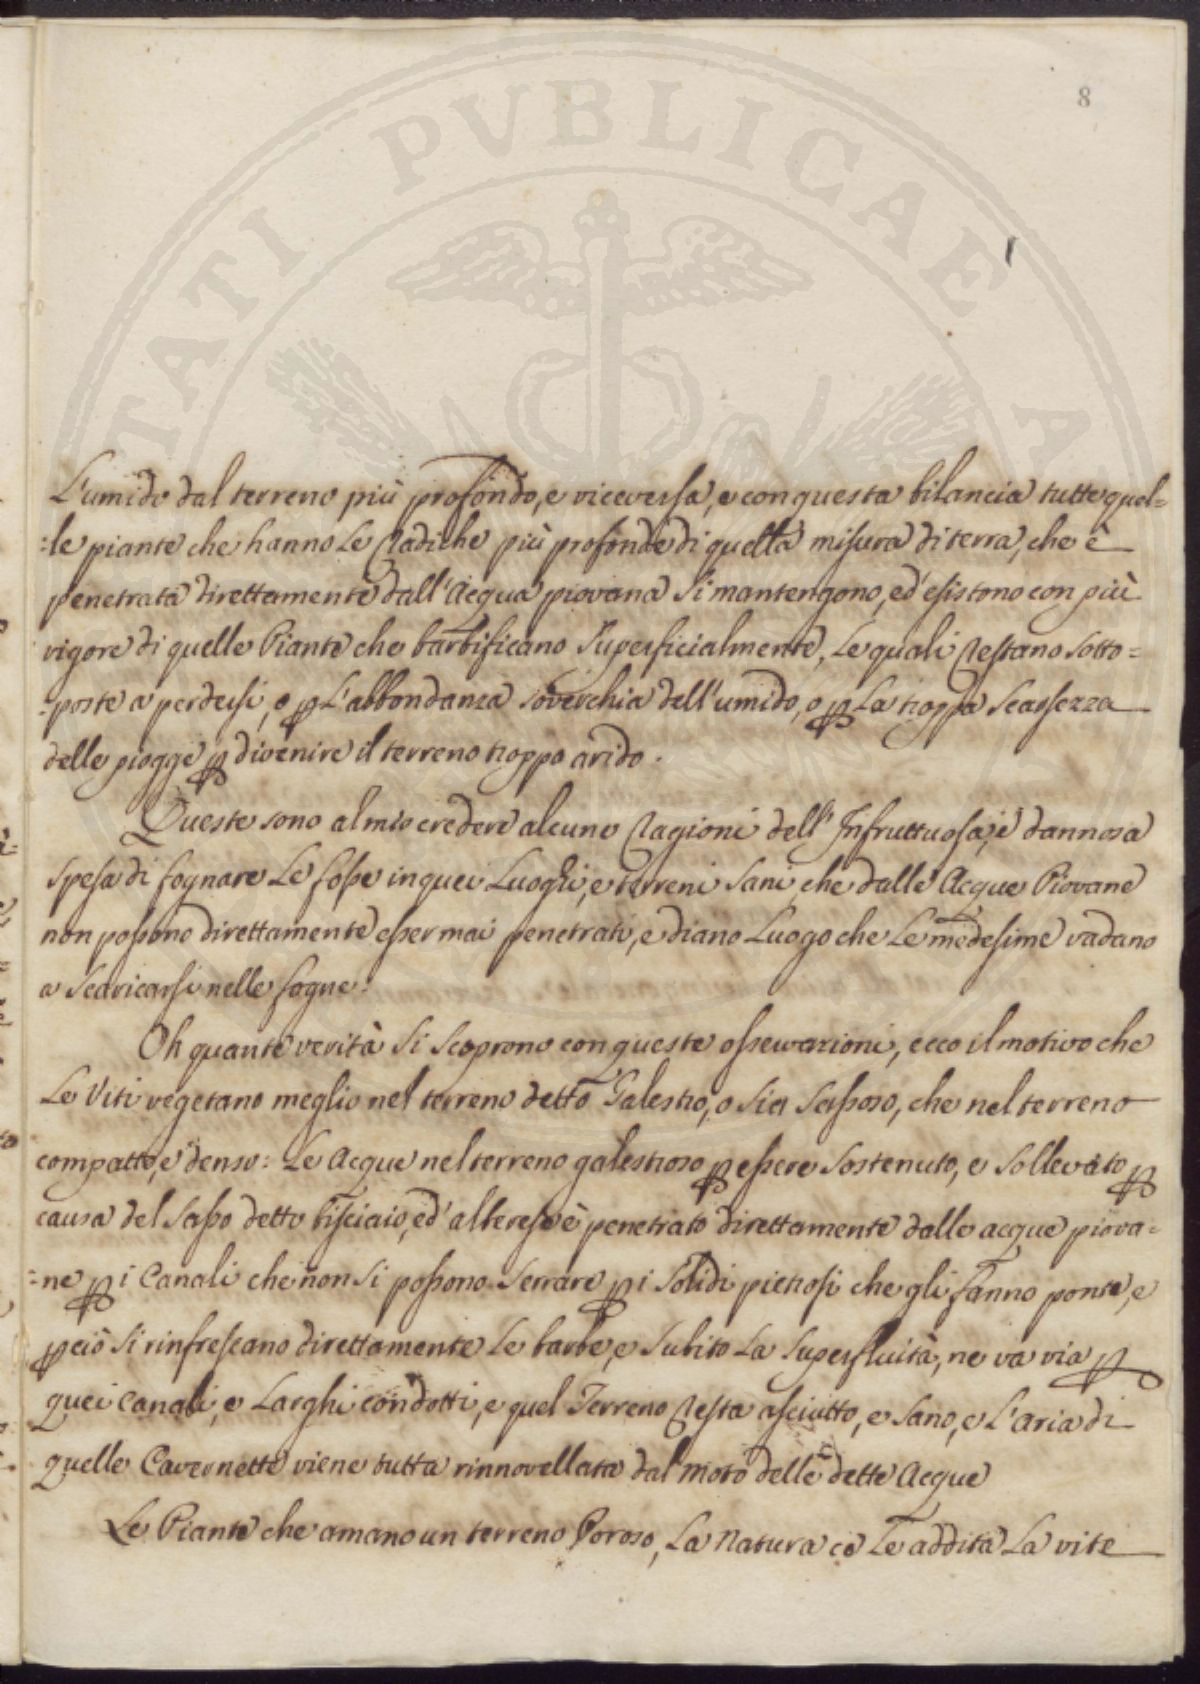 8
TATI PUBLICAE A
L'umido dal terreno più profondo, e viceversa, e con questa bilancia tutte quel=
=le piante che hanno le Radiche più profonde di quella misura di terra, che è
penetrata direttamente dall'Acqua piovana si mantengono, ed'esistono con più
vigore di quelle Piante che barbificano superficialmente, le quali Restano sotto=
=poste a perdersi, o p L'abbondanza soverchia dell'umido, o p La troppa Scarsezza
delle piogge p divenire il terreno troppo arido.
Queste sono al mio credere alcune Ragioni dell'Infruttuosa, e dannosa
spesa di fognare Le fosse in quei Luoghi, e terreni sani, che dalle Acque Piovane
non possono direttamente esser mai penetrati, e diano Luogo che Le medesime vadano
a Scaricarsi nelle fogne.
Oh quante verità si scoprono con queste osservazioni, ecco il motivo che
Le Viti vegetano meglio nel terreno detto Galestro, o sia Sassoso, che nel terreno
compatto, e denso: Le Acque nel terreno galestroso p essere Sostenuto, e Sollevato p
causa del Sasso detto bisciaio, ed'alberese è penetrato direttamente dalle acque piova=
=ne p i Canali che non si possono Serrare p i Solidi pietrosi che gli fanno ponte, e
p ciò si rinfrescano direttamente Le barbe, e Subito La Superfluità, ne va via p
quei Canali, e Larghi condotti, e quel Terreno Resta asciutto, e Sano, e L'aria di
quelle Cavernette viene tutta rinnovellata dal moto delle dette Acque
Le Piante che amano un terreno Poroso, La Natura ce Le addita La vite